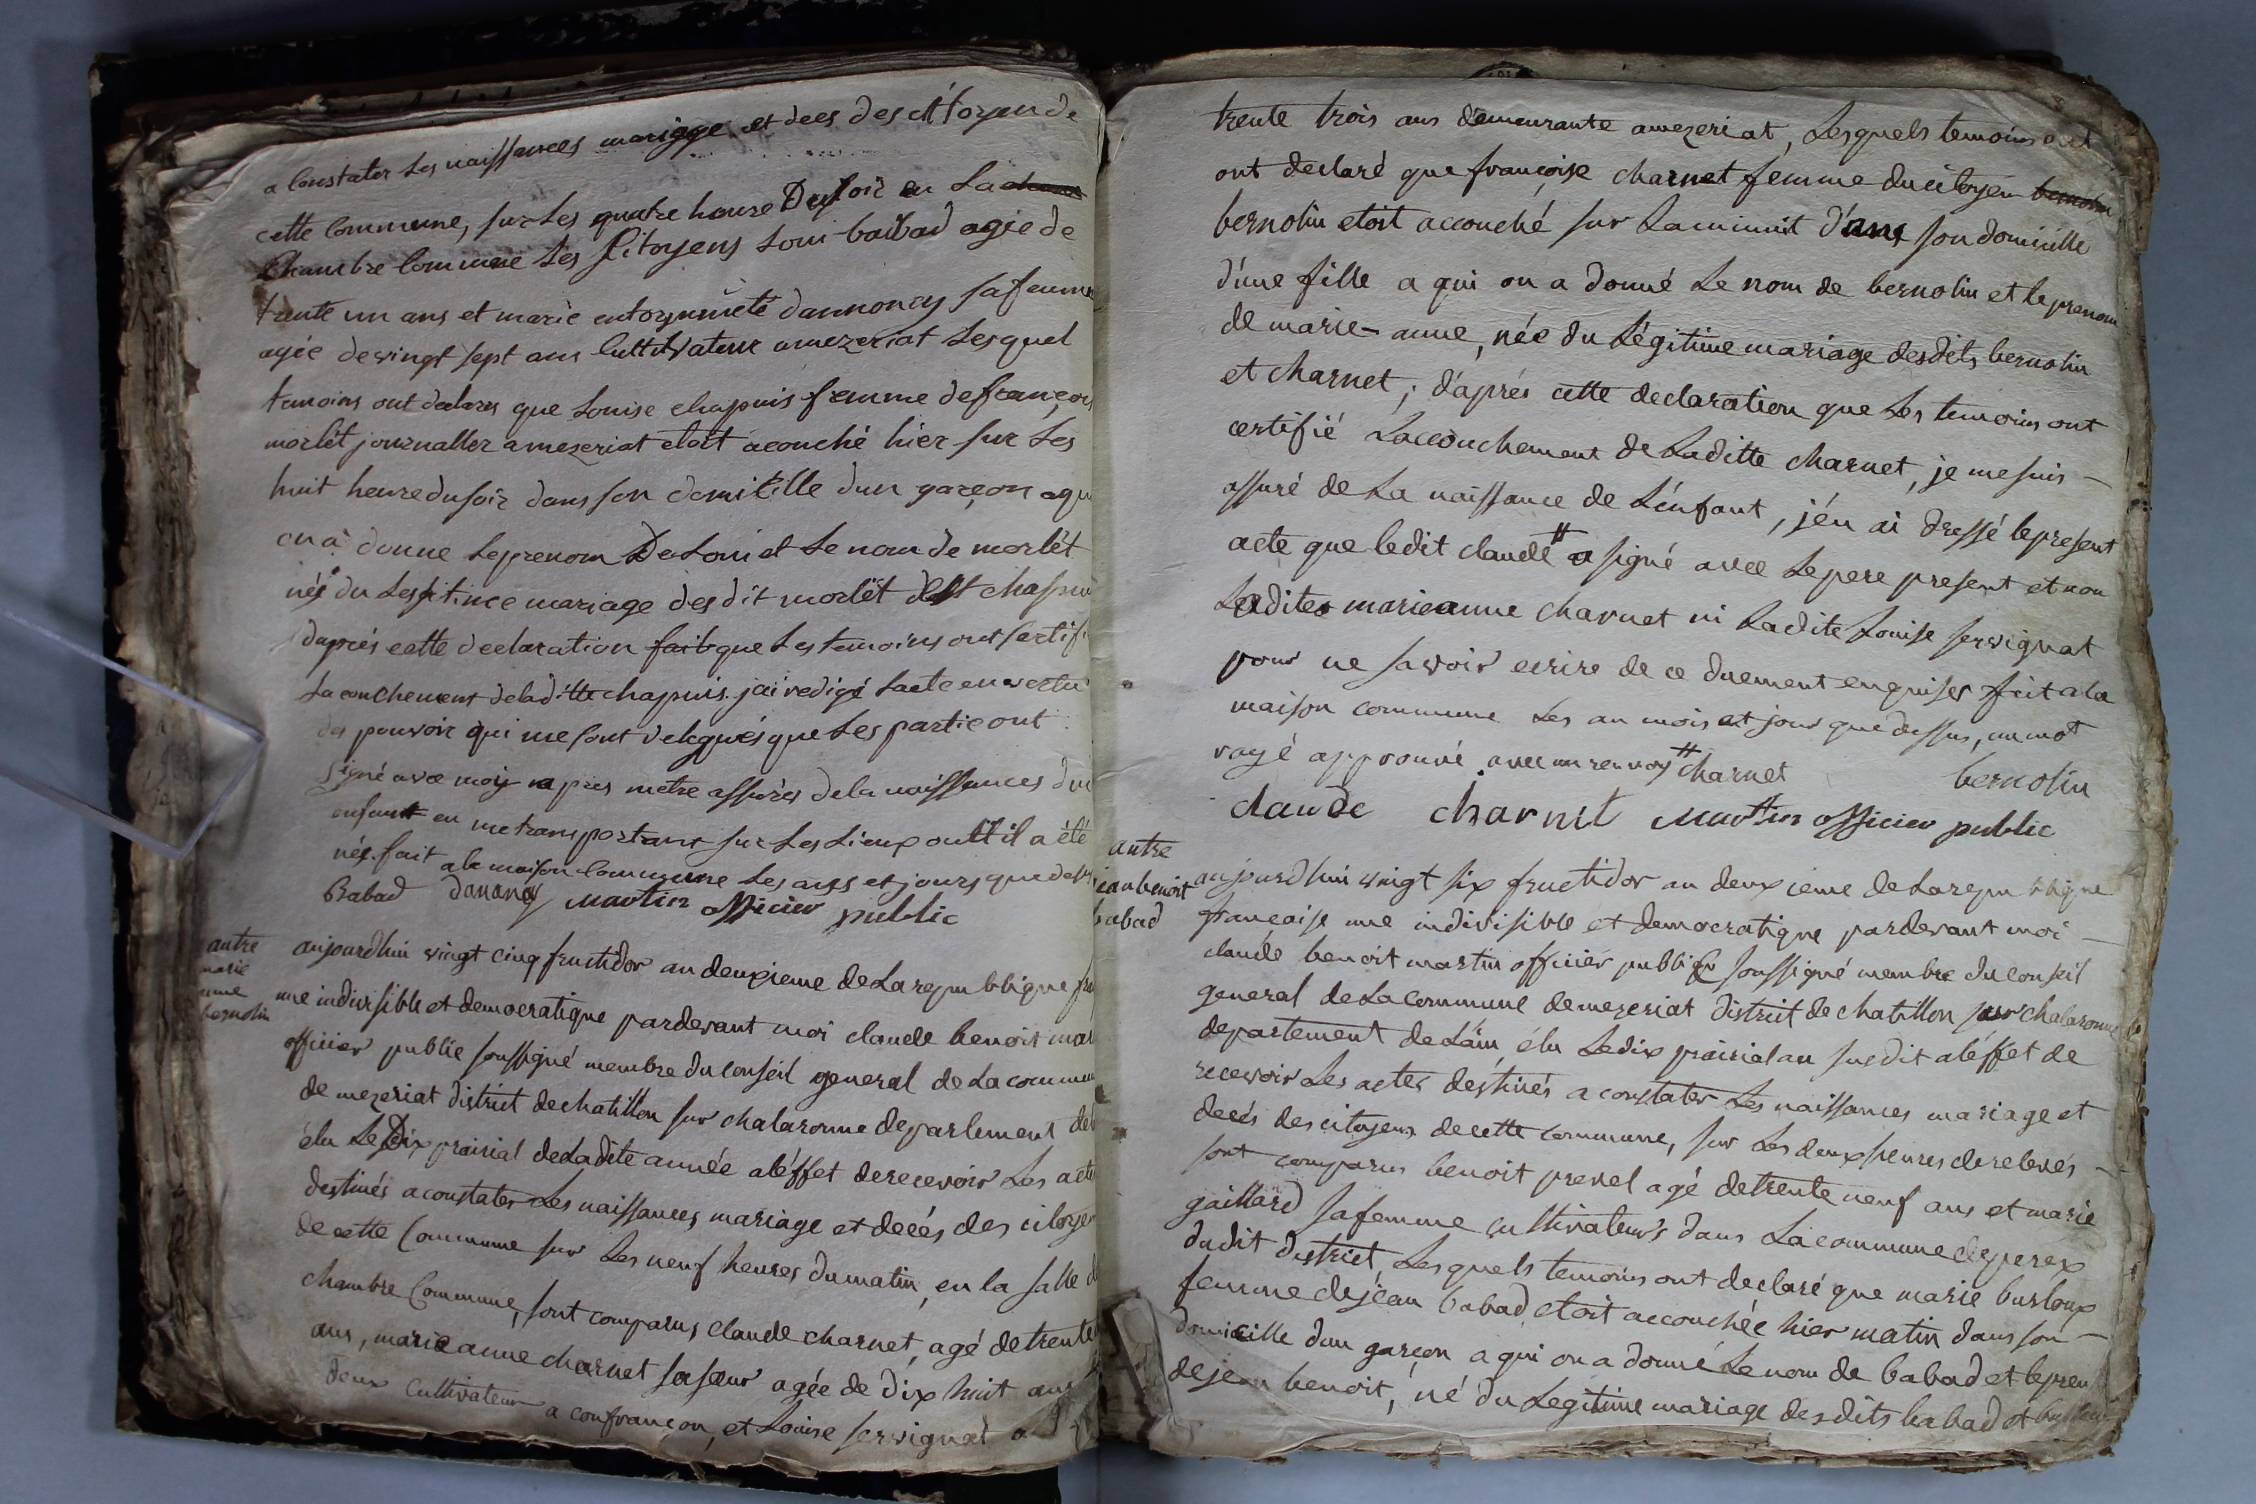 a Constater Les naissances mariage et dees des citoyen de
cette Commune, sur Les quatre heure Du soir en La
Chambre Commune Les Citoyens Loui baibad agée de
trente un ans et marie antoynniete dannoncy sa femme
agée de vingt sept ans Cultivateur a mezeriat Lesquel
temoins ont declares que Louise chapuis femme de françois
morlêt journallier a mezeriat etoit acouché hier sur Les
huit heure du soir dans son domicille dun garçon a qu
on a donne Le prenom De Loui et Le nom de morlêt
née du Legitime mariage des dit morlêt et chapui
daprés cette declaration que Les temoins ont Certifi
La couchement de laditte chapuis. jai redigé Lacte en vertu
des pouvoir qui me sont delegués que Les partie ont
signé avec moy apres metre assurés de la naissances du
enfant en me transportant sur Les Lieux outt il a été
née. fait a la maison Commune Les ans et jours que dessu
Babad danancy Martin officier public
autre
marie
anne
bernolin
aujourdhui vingt cinq fructidor an deuxieme de La republique fra
une indivisible et democratique pardevant moi claude benoit mar
officier public soussigné membre du Conseil general de La commun
de mezeriat district de chatillon sur chalaronne departement de
élu Le Dix prairial de Ladite année a léffet de recevoir Les acte
destinés a constater Les naissances mariage et decés des citoyen
de cette Commune sur Les neuf heures du matin, en la salle d
chambre Commune, sont comparus claude charnet, agé de trente
ans, marie anne charnet sa sœur agée de dix huit ans
deux cultivateur a confrançon, et Louise servignat a
trente trois ans demeurante a mezeriat, Lesquels temoins ont
ont declaré que françoise charnet femme du citoyen bernolin
bernolin etoit accouché sur La minuit dans son domicille
d'une fille a qui on a donné Le nom de bernolin et le prenom
de marie-anne, née du Légitime mariage desdits bernolin
et charnet; d'aprés cette declaration que Les temoins ont
certifié Laccouchement de Laditte charnet, je me suis -
assuré de La naissance de L'énfant, j'én ai dressé le present
acte que ledit claude # a signé avec Le pere present et non
Ladite marieanne charnet ni Ladite Louise servignat
pour ne savoir ecrire de ce duement enquises fait a la
maison commune Les an mois et jour que dessus, un mot
rayé approuvé. avec un renvoy # charnet bernolin
claude charnet Martin officier public
autre
jean benoit
babad
aujourdhui vingt six fructidor an deuxieme de La republique
française une indivisible et democratique pardevant moi -
claude benoit martin officiér public soussigné membre du conseil
general de La commune de mezeriat district de chatillon sur chalaronne
departement de L'ain, élu Le dix prairial an susdit a léffet de
recevoir Les actes déstinés a constater Les naissances mariage et
decés des citoyens de cette commune, sur Les deux heures de relevés -
sont comparus benoit prevel agé de trente neuf ans et marie
gaillard sa femme cultivateurs dans La commune de perex
dudit district, Lesquels temoins ont declaré que marie burloux
femme de jean babad etoit accouchée hier matin dans son -
domicille dun garçon a qui on a donné Le nom de babad et le pren
de jean benoit, né du Legitime mariage desdits babad et burloux